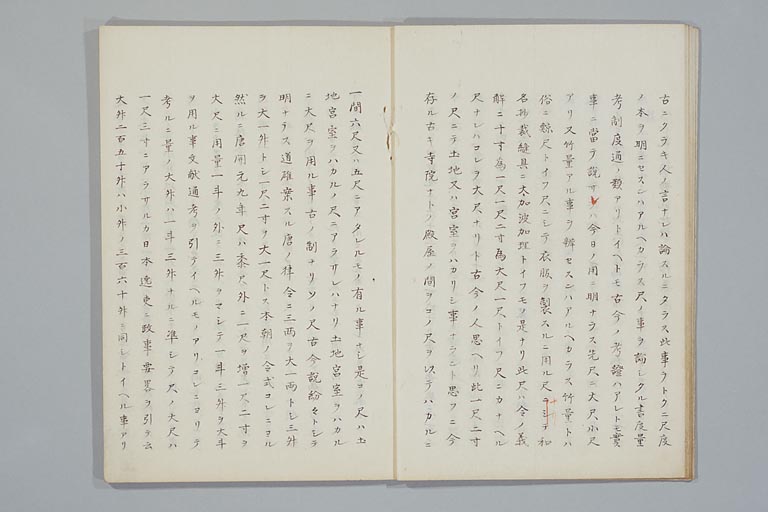 古ニクラキ人ノ言ナレハ論スルニタラス此事ヲトクニ尺度
ノ本ヲ明ニセスンハアルヘカラス尺ノ事ヲ論シタル書度量
考制度通ノ類アリトイヘトモ古今ノ考證ハアレトモ實
事ニ當ラ說サレハ今日ノ用ニ明ナラス先尺ニ大尺小尺
アリ又竹量アル事ヲ辨セスンハアルヘカラス竹量トハ
俗ニ鯨尺トイフ尺ニシテ衣服ヲ製スルニ用ル尺ニシテ和
名抄裁縫具ニ太加波加理トイフモノ是ナリ此尺ハ令ノ義
解ニ十寸為一尺一尺二寸為大尺一尺トイフニカナヘル
尺ナレハコレヲ大尺ナリト古今ノ人思ヘリ此一尺二寸
ノ尺ニテ土地又ハ宮室ヲハカリシ事ナラント思フニ今
存ル古キ寺院ナトノ殿屋ノ間ヲコノ尺ヲ以テハカルニ
一間六尺又ハ五尺ニアタレルモノ有ル事ナシ是コノ尺ハ土
地宮室ヲハカルノ尺ニアラサレハナリ土地宮室ヲハカル
ニ大尺ヲ用ル事古ノ制ナリソノ尺古今説紛々トシテ
明ナラス道雄案スル唐ノ律令ニ三兩ヲ大一兩トシ三升
ヲ大一升トシ一尺二寸ヲ大一尺トス本朝ノ令式コレニヨル
然ルニ唐開元九年尺ハ黍尺外ニ一尺ヲ増一尺二寸ヲ
大尺ニ用量一斗ノ外ニ三升ヲマシテ一斗三升ヲ大斗
ヲ用ル事文献通考ヲ引テイヘルモノアリコレニヨリテ
考ルニ量ノ大升ハ一斗三升ナルニ準シテ尺ノ大尺ハ
一尺三寸ニアラサルカ日本逸史ニ政事要畧ヲ引テ云
大升二百五十升ハ小升ノ三百六十升ニ同シトイヘル事アリ